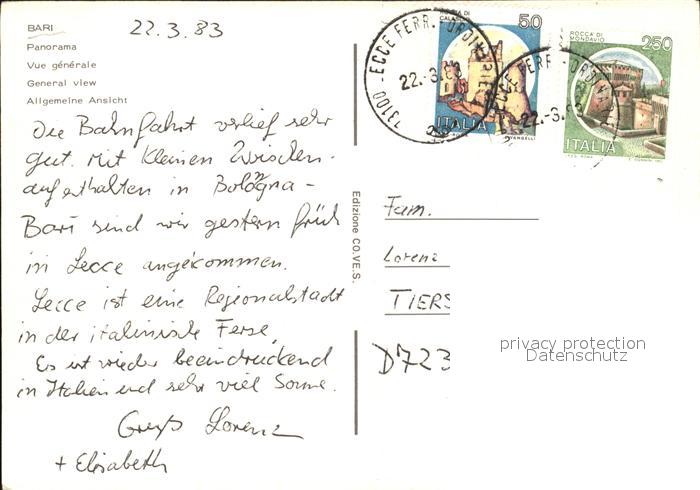 BARI
22.3.83
Panorama
Vue générale
General view
Allgemeine Ansicht
Die Bahnfahrt verlief sehr
gut. Mit kleinen Zwischen-
aufenthalten in Bologna -
Bari sind wir gestern früh
in Lecce angekommen.
Lecce ist eine Regionalstadt
in der italienische Ferse.
Es ist wieder beeindruckend
in Italien und sehr viel Sonne.
Gruß Lorenz
+ Elisabeth
Edizione CO.VE.S.
ROCCA DI
50
ITALIA
ROCCA DI
MONDAVIO
250
ITALIA
73100 LECCE FERR.-ORDIN
22.-3.83
LECCE FERR.-ORDIN
22.-3.83
Fam.
Lorenz
TIERS
D723
privacy protection
Datenschutz